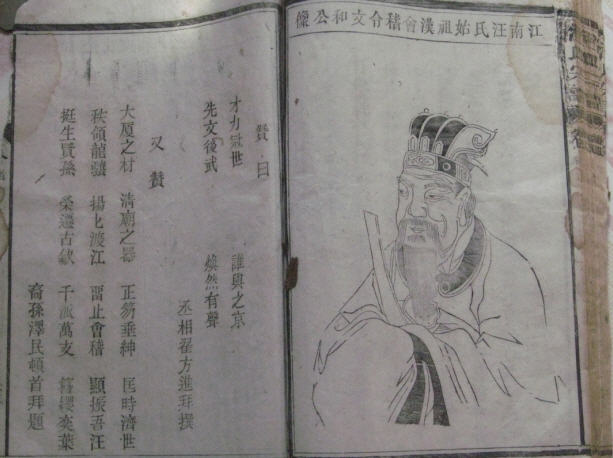 江南汪氏始祖漢會稽令文和公像
贊曰
才力冠世 誰與之京
先文後武 煥然有聲
丞相翟方進拜撰
又贊
大廈之材 清廟之器 正笏垂紳 匡時濟世
秩領龍驤 揚 渡江 畱止會稽 顯振吾汪
挺生賢孫 遷古歙 千派萬支 簪纓奕葉
裔孫澤民頓首拜題